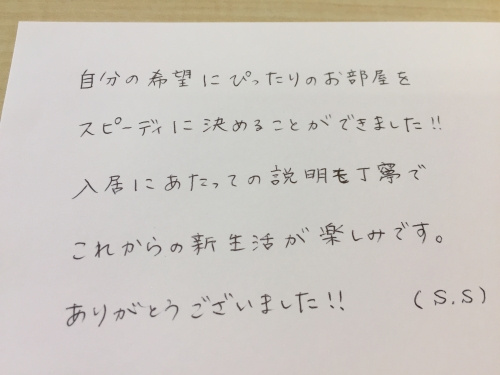 自分の希望にぴったりのお部屋を
スピーディに決めることができました!!
入居にあたっての説明も丁寧で
これからの新生活が楽しみです。
ありがとうございました!! (S.S)